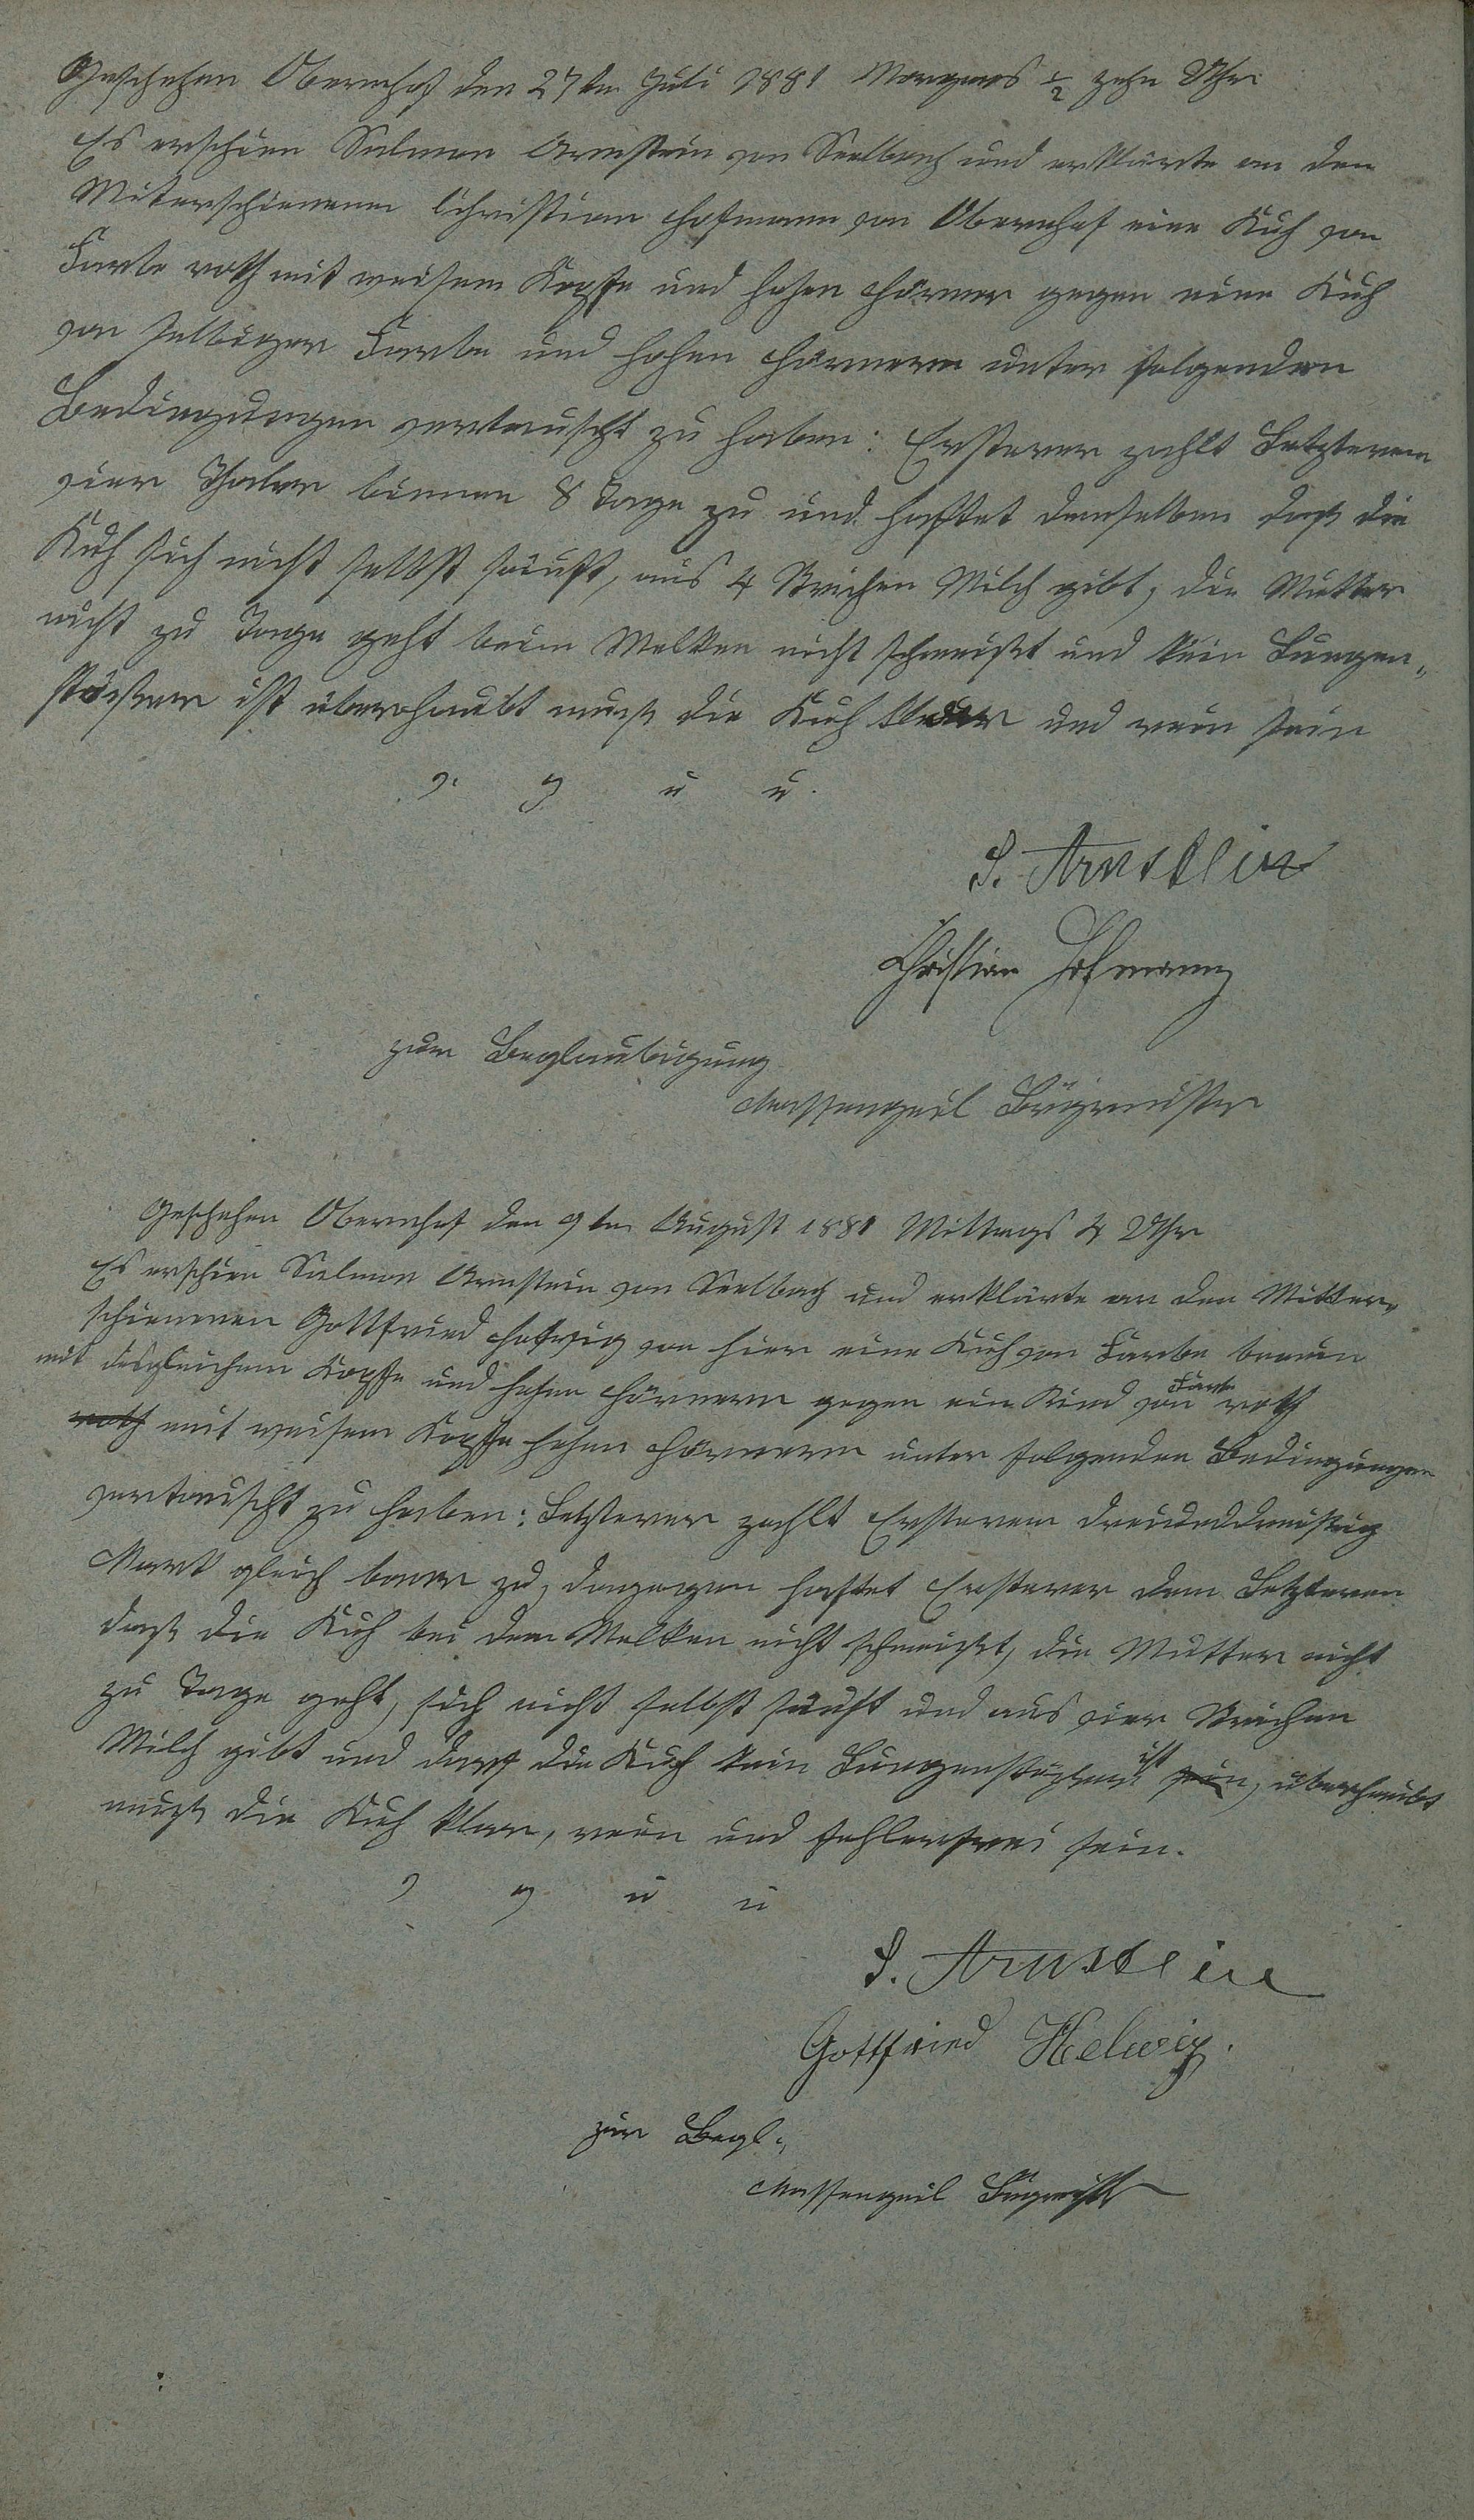 Geschehen Obernhof den 27ten Juli 1881 Morgens ½ zehn Uhr
Es erschien Salmon Arnstein von Seelbach und erklärte an den
Miterschienenen Christian Hofmann von Obernhof eine Kuh von
Farbe roth mit weisem Kopfe und hohen Hörner gegen eine Kuh
von selbiger Farbe und hohen Hörnern unter folgenden
Bedingungen vertauscht zu haben: Ersterer zahlt Letzterem
vier Thaler binnen 8 Tage zu und haftet demselben daß die
Kuh sich nicht selbst säuft, aus 4 Strichen Milch gibt, die Mutter
nicht zu Tage geht beim Melken nicht schmeißt und kein Lungen„
stößer ist überhaubt muß die Kuh klar und rein sein
v. g u u.
S. Arnstein
Christian Hofmann
zur Beglaubigung
Massengeil Bürgermeister
Geschehen Obernhof den 9ten August 1881 Mittags 4 Uhr
Es erschien Salmon Arnstein von Seelbach und erklärte an den Mitter„
schienenen Gottfried Helwig von hier eine Kuh von Farbe braun
mit desgleichem Kopfe und hohen Hörnern gegen ein Rind von Farbe roth
roth mit weisem Kopfe hohen Hörnern unter folgenden Bedingungen
vertauscht zu haben: Letzterer zahlt Ersterem dreiunddreisig
Mark gleich baar zu, dagegen haftet Ersterer dem Letzteren
daß die Kuh bei dem Melken nicht schmeißt, die Mutter nicht
zu Tage geht, sich nicht selbst säuft und aus vier Strichen
Milch gibt und daß die Kuh kein Lungenstößer ist sein, überhaubt
muß die Kuh klar, rein und fehlerfrei sein.
v g u u
S. Arnstein
Gottfried Helwig.
zur Begl.,
Massengeil Bürgermeister